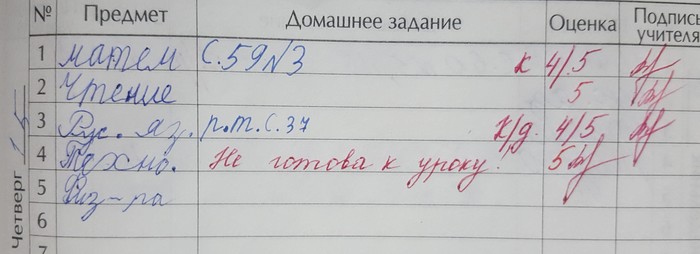 № Предмет Домашнее задание Оценка Подпись учителя
Четверг 15
1 матем с. 59 №3 к 4/5
2 Чтение 5
3 Рус. яз. р.т. с. 37 к/д. 4/5
4 Техно. Не готова к уроку! 5
5 Физ-ра
6
7